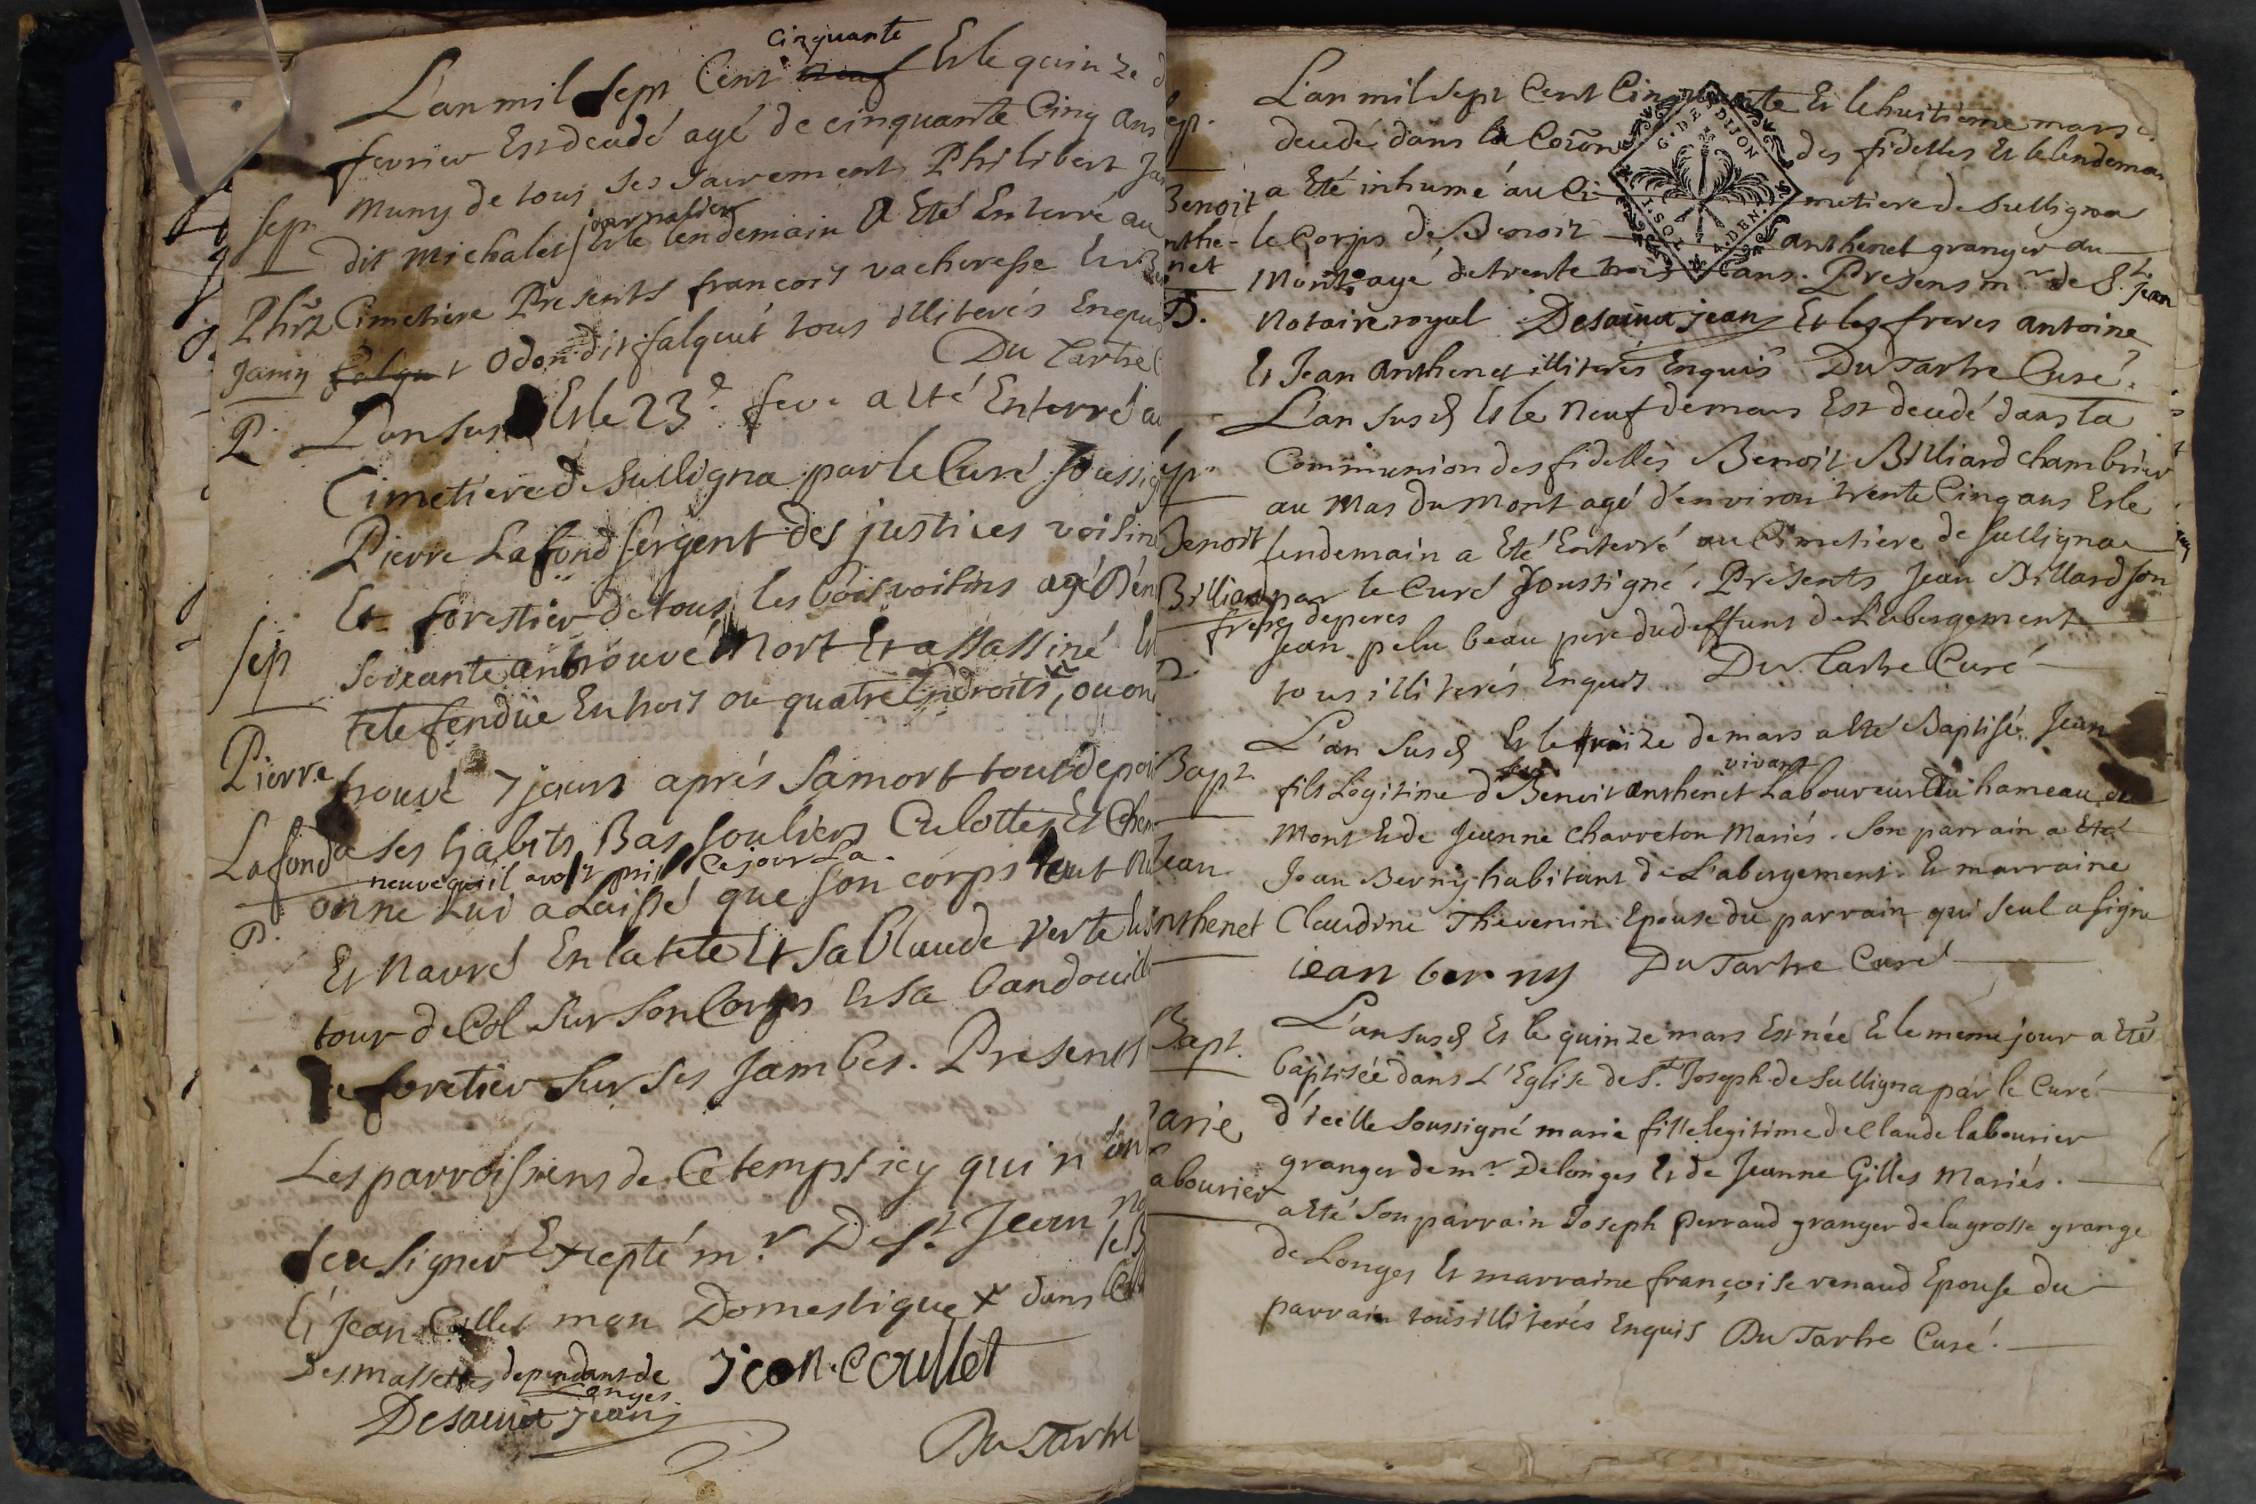 cinquante
L'an mil sept Cent neuf Et le quinze
fevrier Est decedé agé de cinquante Cinq ans
muny de tous ses sacrements Philibert Ja
journalier
sep. dit michalet Et le lendemain A Eté Enterré au
Cimetiere Presents françois vacheresse Et
Jamin falque t Odon dit falquet tous illiterés Enquis
Du Tartre
P. L'an susd Et le 23e fev. a Eté Enterré au
Cimetiere de Sulligna par le Curé soussig
Pierre Lafond sergent des justices voisin
Et forestier de tous les bois voisins agé D'en
sep Soixante ans trouvé Mort Et assassiné
tete fendüe En trois ou quatre Endroits, ou on
Pierre trouvé 7 jours aprés sa mort tout depoui
Lafond a ses habits, Bas, souliers Culottes Et Chem
neuve qu'il avoit pris ce jour La.
on ne Lui a Laissé que son corps tout nu
P.
Et navré En la tete Et sa blaude verte
tour de Col sur son Corps Et sa bandouill
de foretier sur ses jambes. Presents
Les parroissiens de Ce temps icy qui n'on
sceu signer Excepté mr De st Jean no
Et Jean Collet mon Domestique x dans
Des massettes dependans de
Longes.
jean Coullet
Desaint jean
Du Tartre
L'an mil sept Cent Cinquante Et le huitieme mars
decedé dans la Coñon des fidelles Et le lendemain
G. DE DIJON
Benoit a Eté inhumé au Ci metiere de Sulligna
nthe- le Corps de Benoit anthenet granger au
2. SOLS 4. DEN.
net Mont agé de trente trois ans. Presens mr de St. jean
D. Notaire royal Desaint jean Et les freres antoine
Et Jean Anthenet illiterés Enquis Du Tartre Curé.
L'an susd Et le Neuf de mars Est decedé dans la
Communion des fidelles Benoit Billiard chambrier
au Mas du Mont agé d'environ trente Cinq ans Et le
Benoit lendemain a Eté Enterré au Cimetiere de Sulligna
Billiard par le Curé soussigné. Presents Jean Billard son
frere de peres
Jean pelu beau pere du deffunt de L'abergement
tous illiterés Enquis Du Tartre Curé
L'an susd Et le treize de mars a Eté Baptisé Jean
vivant
Bapt. fils Legitime de Benoit anthenet Laboureur du hameau du
Mont Et de Jeanne Charreton Mariés. Son parrain a Eté
Jean. Jean Berny habitant de L'abergement Et marraine
nthenet Claudine Thevenin Epouse du parrain qui seul a signé
iean berny Du Tartre Curé
L'an susd Et le quinze mars Est née Et le meme jour a Eté
Bapt. baptisée dans L'Eglise de St. Joseph de Sulligna par le Curé
arie d'icelle soussigné marie fille legitime de Claude labourier
granger de mr. Delonges Et de Jeanne Gilles Mariés.
abourier a Eté Son parrain Joseph perraud granger de la grosse grange
de Longes Et marraine françoise renaud Epouse du
parrain tous illiterés Enquis Du Tartre Curé.